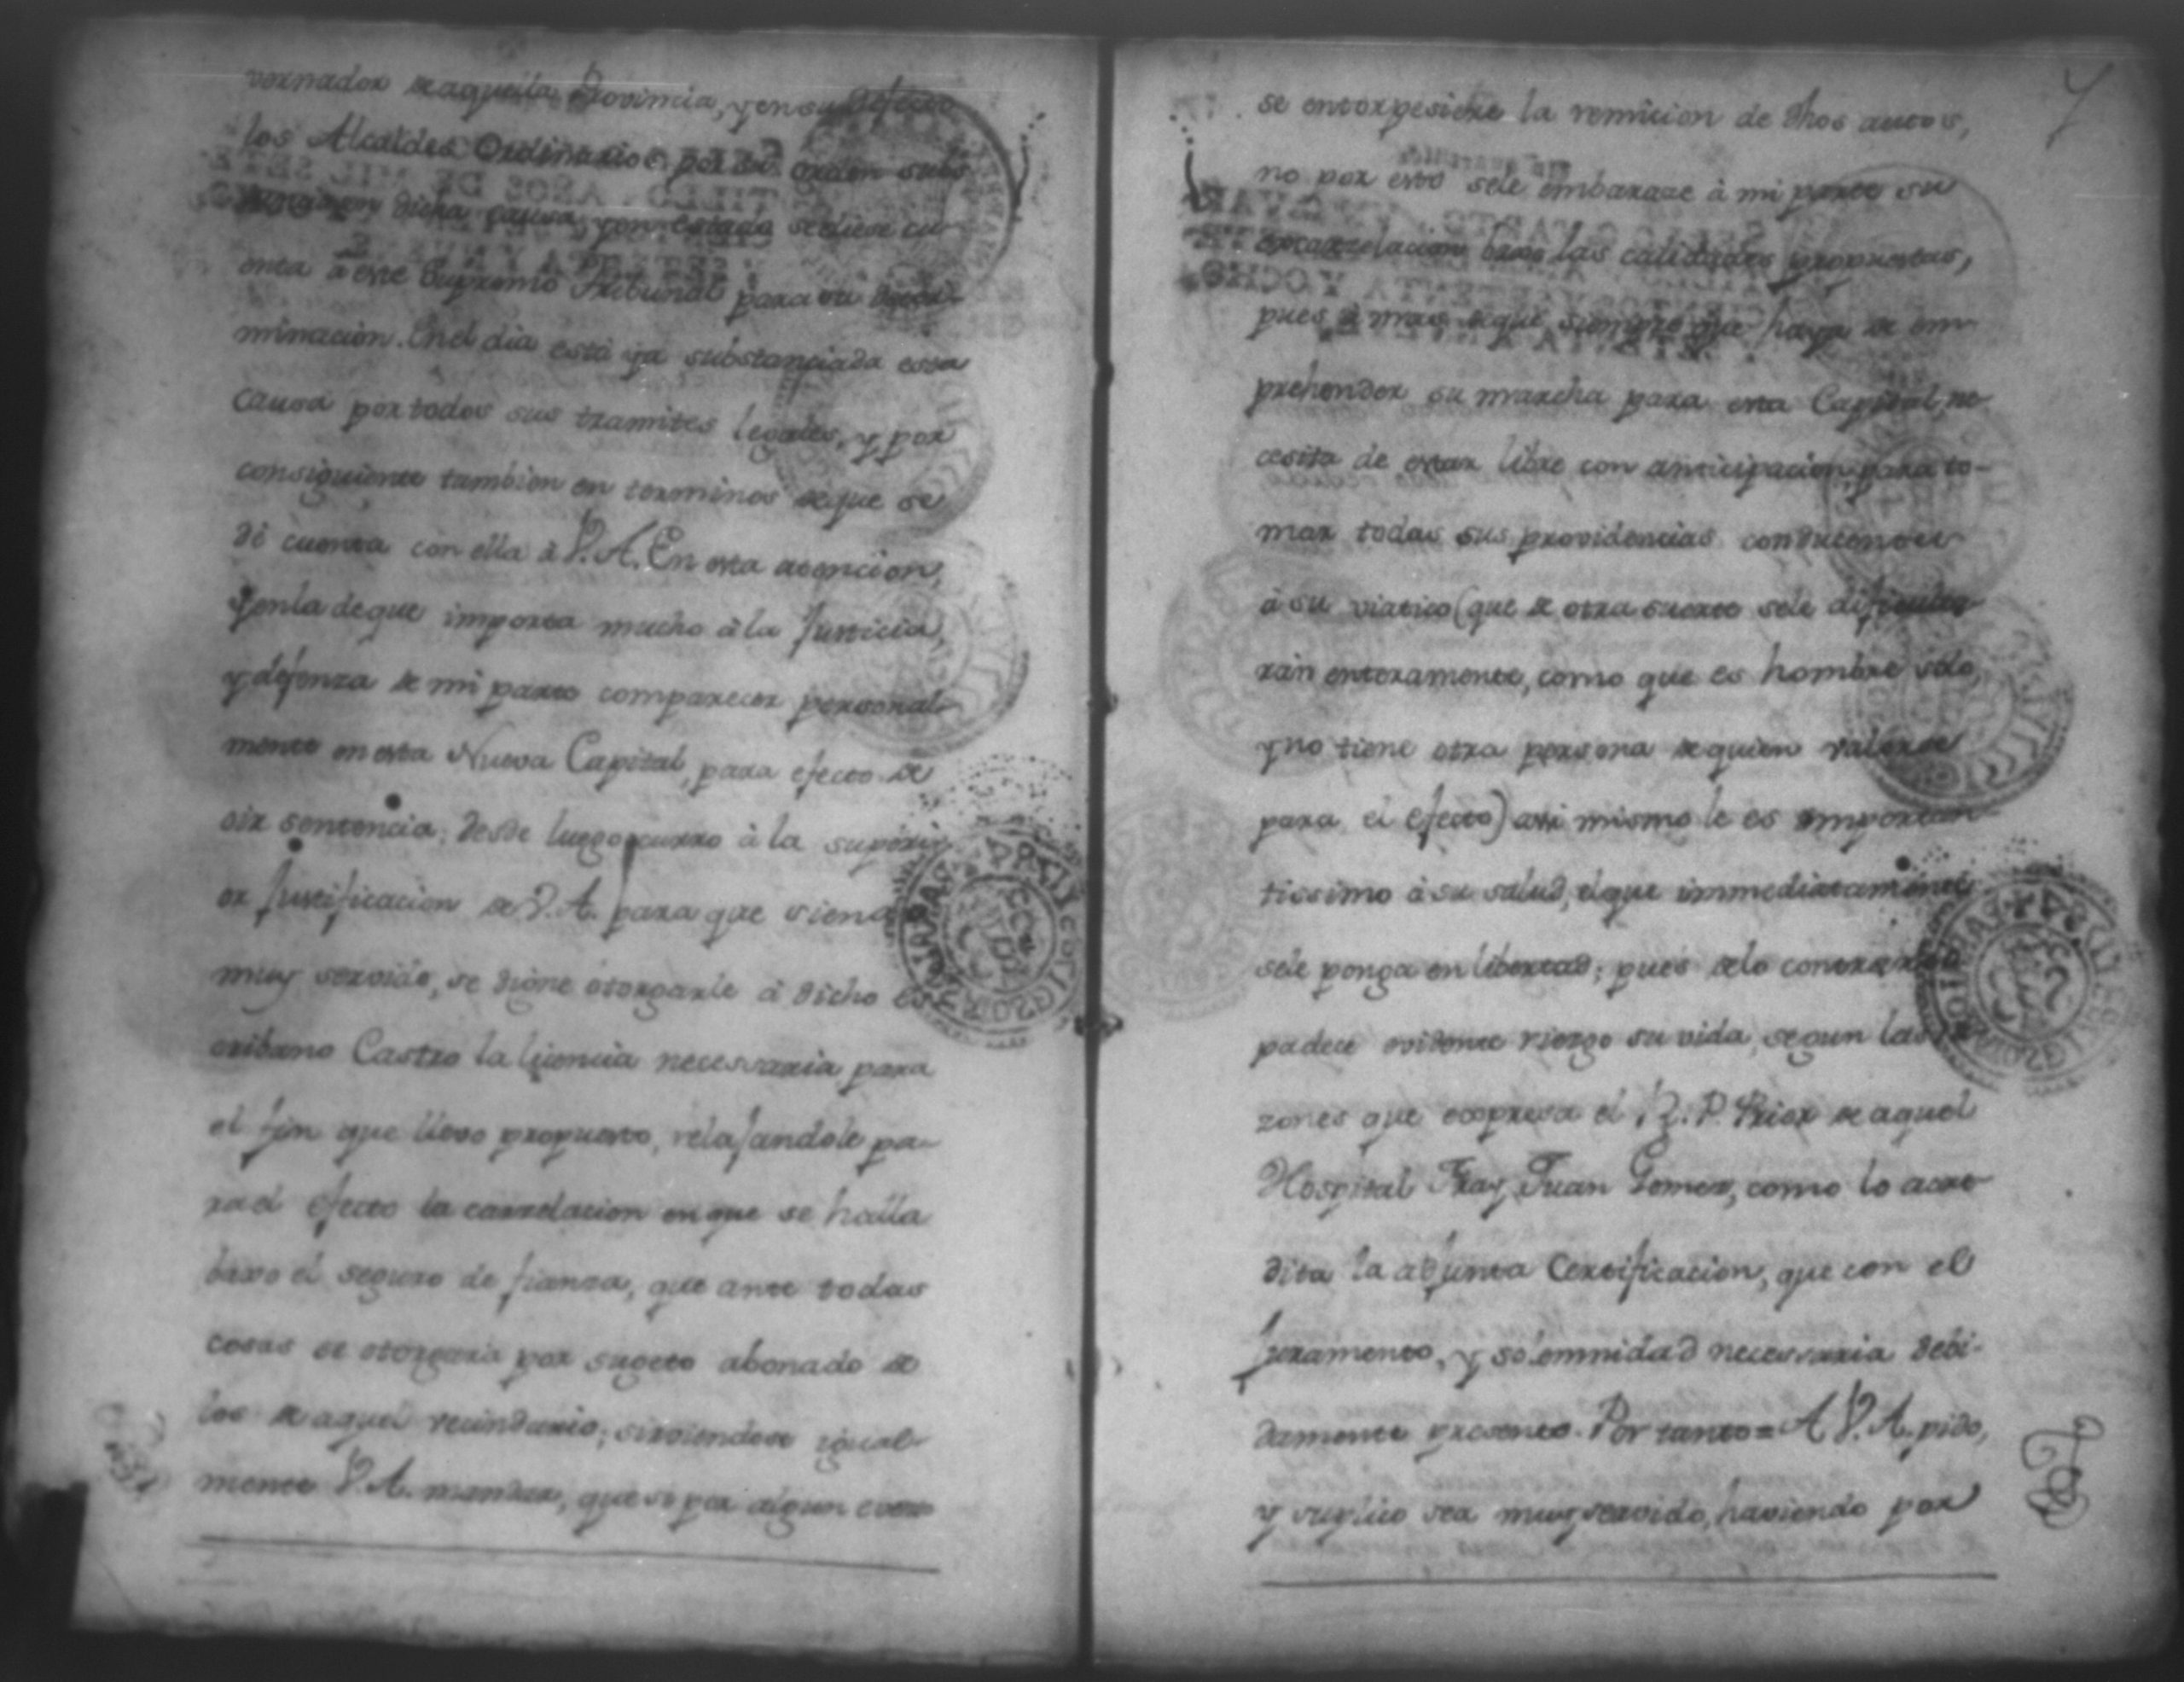 vernador de aquella Provincia, y en su defecto
los Alcaldes Ordinarios por su orden subs
dicha causa, y en estado se diese cu
enta à este Supremo Tribunal para su deter
minacion. En el dia està ya substanciada essa
causa por todos sus tramites legales, y por
consiguiente tambien en terminos de que se
dé cuenta con ella à V. A. En esta atencion,
y en la de que importa mucho à la Justicia,
y defenza de mi parte comparecer personal-
mente en esta Nueva Capital, para efecto de
oir sentencia; desde luego ocurro à la superi-
or Justificacion de V. A. para que siendo
muy servido, se digne otorgarle à dicho es-
cribano Castro la licencia necessaria para
el fin que llevo propuesto, relajandole pa-
ra el efecto la carcelacion en que se halla
baxo el seguro de fianza, que ante todas
cosas se otorgaria por sugeto abonado de
los de aquel vecindario; sirviendose igual-
mente V. A. mandar, que si por algun evento
7
se entorpesiere la remicion de dhos autos,
no por esto sele embarace à mi parte su
excarcelacion baxo las calidades propuestas,
pues à mas de que siempre que haya de em-
prehender su marcha para esta Capital, ne-
cesita de estar libre con anticipacion para to-
mar todas sus providencias conducentes
à su viatico (que de otra suerte sele dificulta-
ràn enteramente, como que es hombre solo,
y no tiene otra persona de quien valerse
para el efecto) assi mismo le es importan-
tissimo à su salud, el que immediatamente
sele ponga en libertad; pues de lo contrario
padece evidente riezgo su vida, segun las ra-
zones que expresa el R. P. Prior de aquel
Hospital Fray Juan Gomez, como lo acre-
dita la adjunta Certificacion, que con el
Juramento, y solemnidad necessaria debi-
damente presento. Por tanto = A V. A. pido,
y suplico sea muy servido, haviendo por